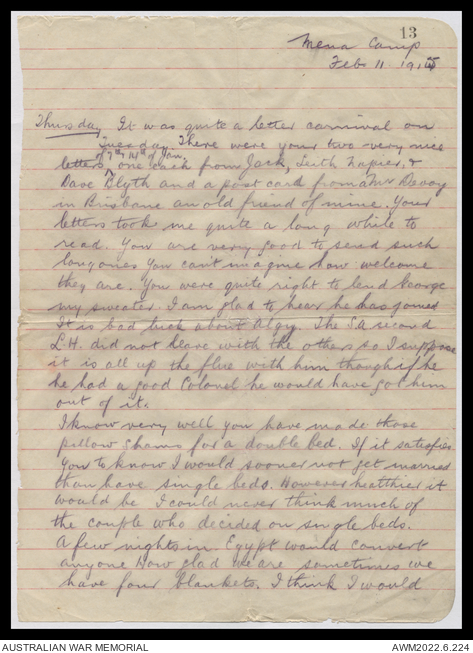 13
Mena Camp
Feb 11 1915
Thursday It was quite a letter carnival on
Tuesday. There were your two very nice
of 7th & 14th of Jan.
letters, one each from Jack, Leith Napier, &
Dave Blyth and a post card from Mr Devoy
in Brisbane an old friend of mine. Your
letters took me quite a long while to
read. You are very good to send such
long ones you can't imagine how welcome
they are. You were quite right to lend George
my sweater. I am glad to hear he has joined
It is bad luck about Algy. The S.A second
L.H. did not leave with the others so I suppose
it is all up the flue with him though if he
he had a good Colonel he would have got him
out of it.
I know very well you have made those
pillow shams for a double bed. If it satisfies
you to know I would sooner not get married
than have single beds. However healthier it
would be I could never think much of
the couple who decided on single beds.
A few nights in Egypt would convert
anyone How glad we are sometimes we
have four blankets. I think I would
AUSTRALIAN WAR MEMORIAL
AWM2022.6.224